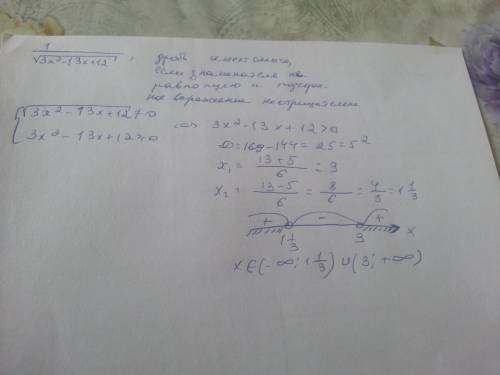 1
√3x²-13x+12 , дробь имеет смысл,
если знаменатель не
равен нулю и подкорен-
ное выражение неотрицательн
{ √3x²-13x+12 ≠ 0
3x²-13x+12 ≥ 0
⇔ 3x²-13x+12>0
D=169-144=25=5²
x₁ = 13+5/6 = 3
x₂ = 13-5/6 = 8/6 = 4/3 = 1 1/3
+ - +
1 1/3 3 x
x∈(-∞; 1 1/3) ∪ (3; +∞)